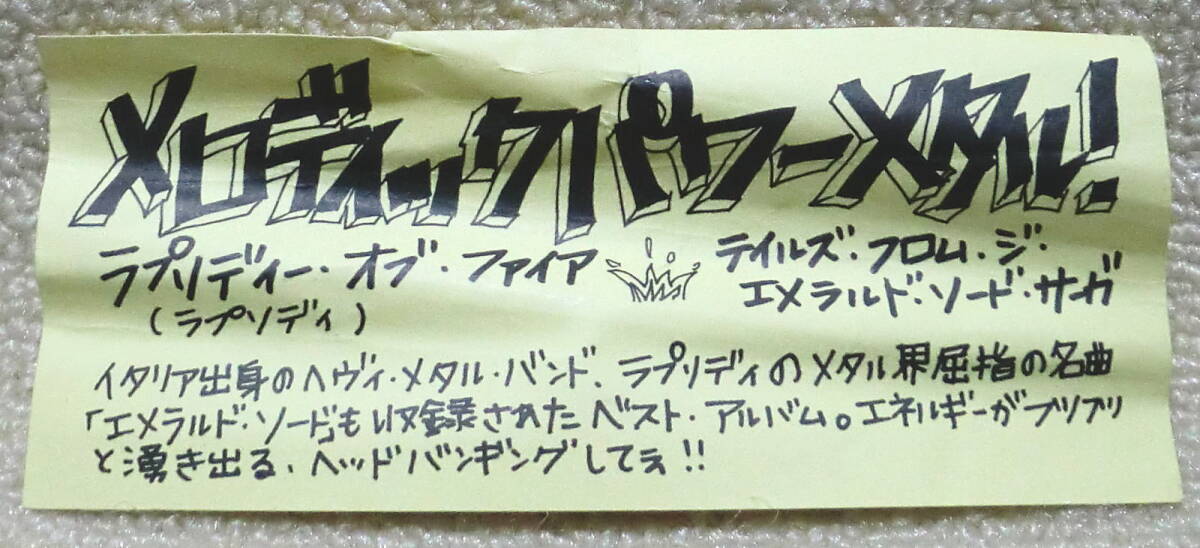 メロディックパワーメタル!
ラプソディー・オブ・ファイア
(ラプソディ)
テイルズ・フロム・ジ・
エメラルド・ソード・サーガ
イタリア出身のヘヴィ・メタル・バンド、ラプソディのメタル界屈指の名曲
「エメラルド・ソード」も収録されたベスト・アルバム。エネルギーがブリブリ
と湧き出る、ヘッドバンギングしてぇ!!